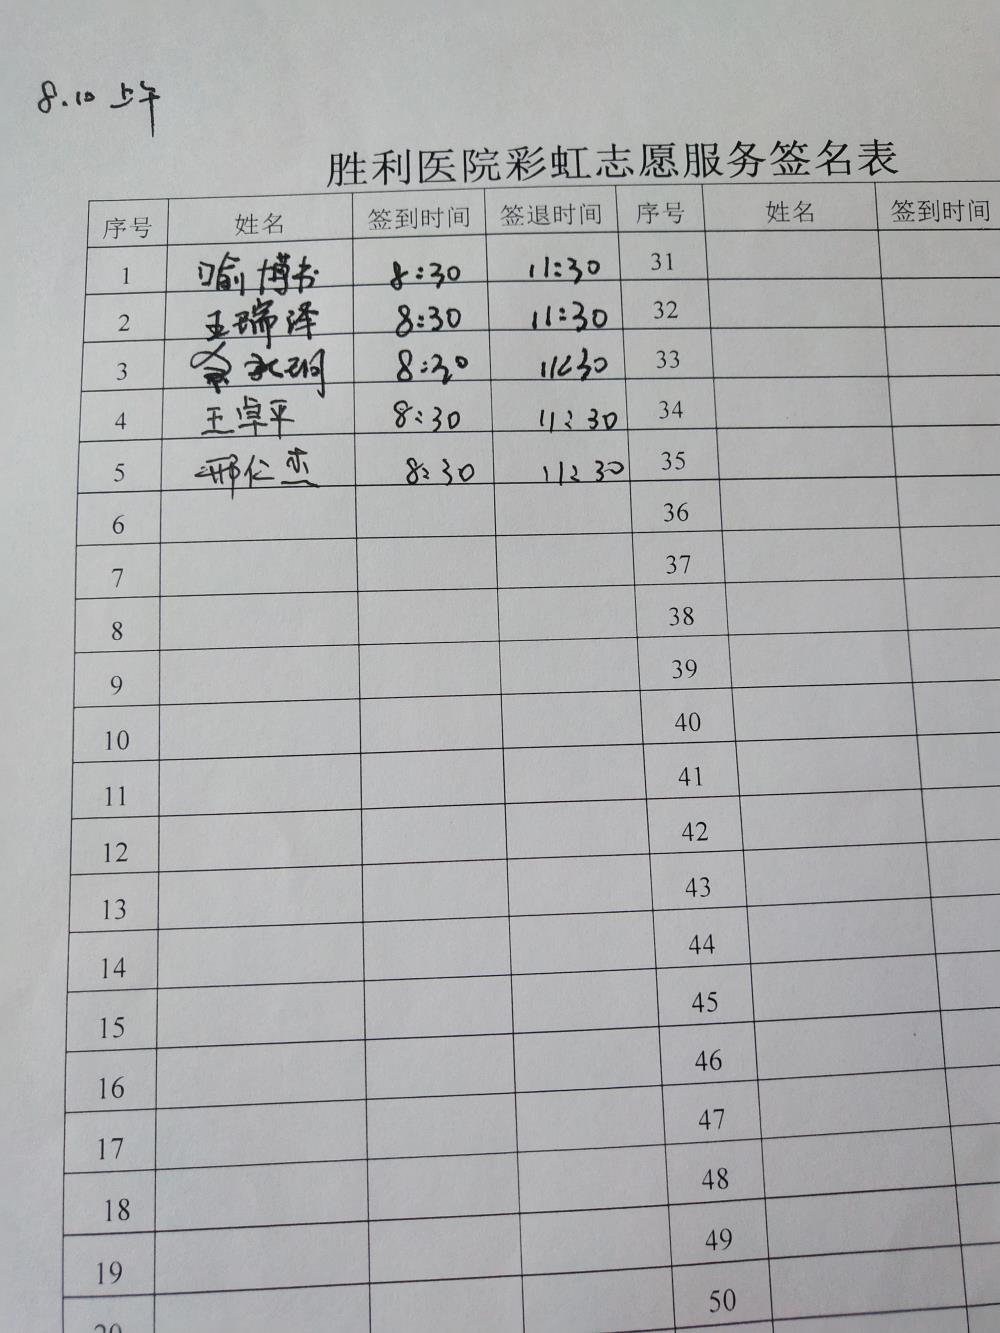 8.10 上午
胜利医院彩虹志愿服务签名表
序号 姓名 签到时间 签退时间 序号 姓名 签到时间
1 喻博书 8:30 11:30 31
2 王瑞泽 8:30 11:30 32
3 8:30 11:30 33
4 王卓平 8:30 11:30 34
5 邢仁杰 8:30 11:30 35
6 36
7 37
8 38
9 39
10 40
11 41
12 42
13 43
14 44
15 45
16 46
17 47
18 48
19 49
20 50